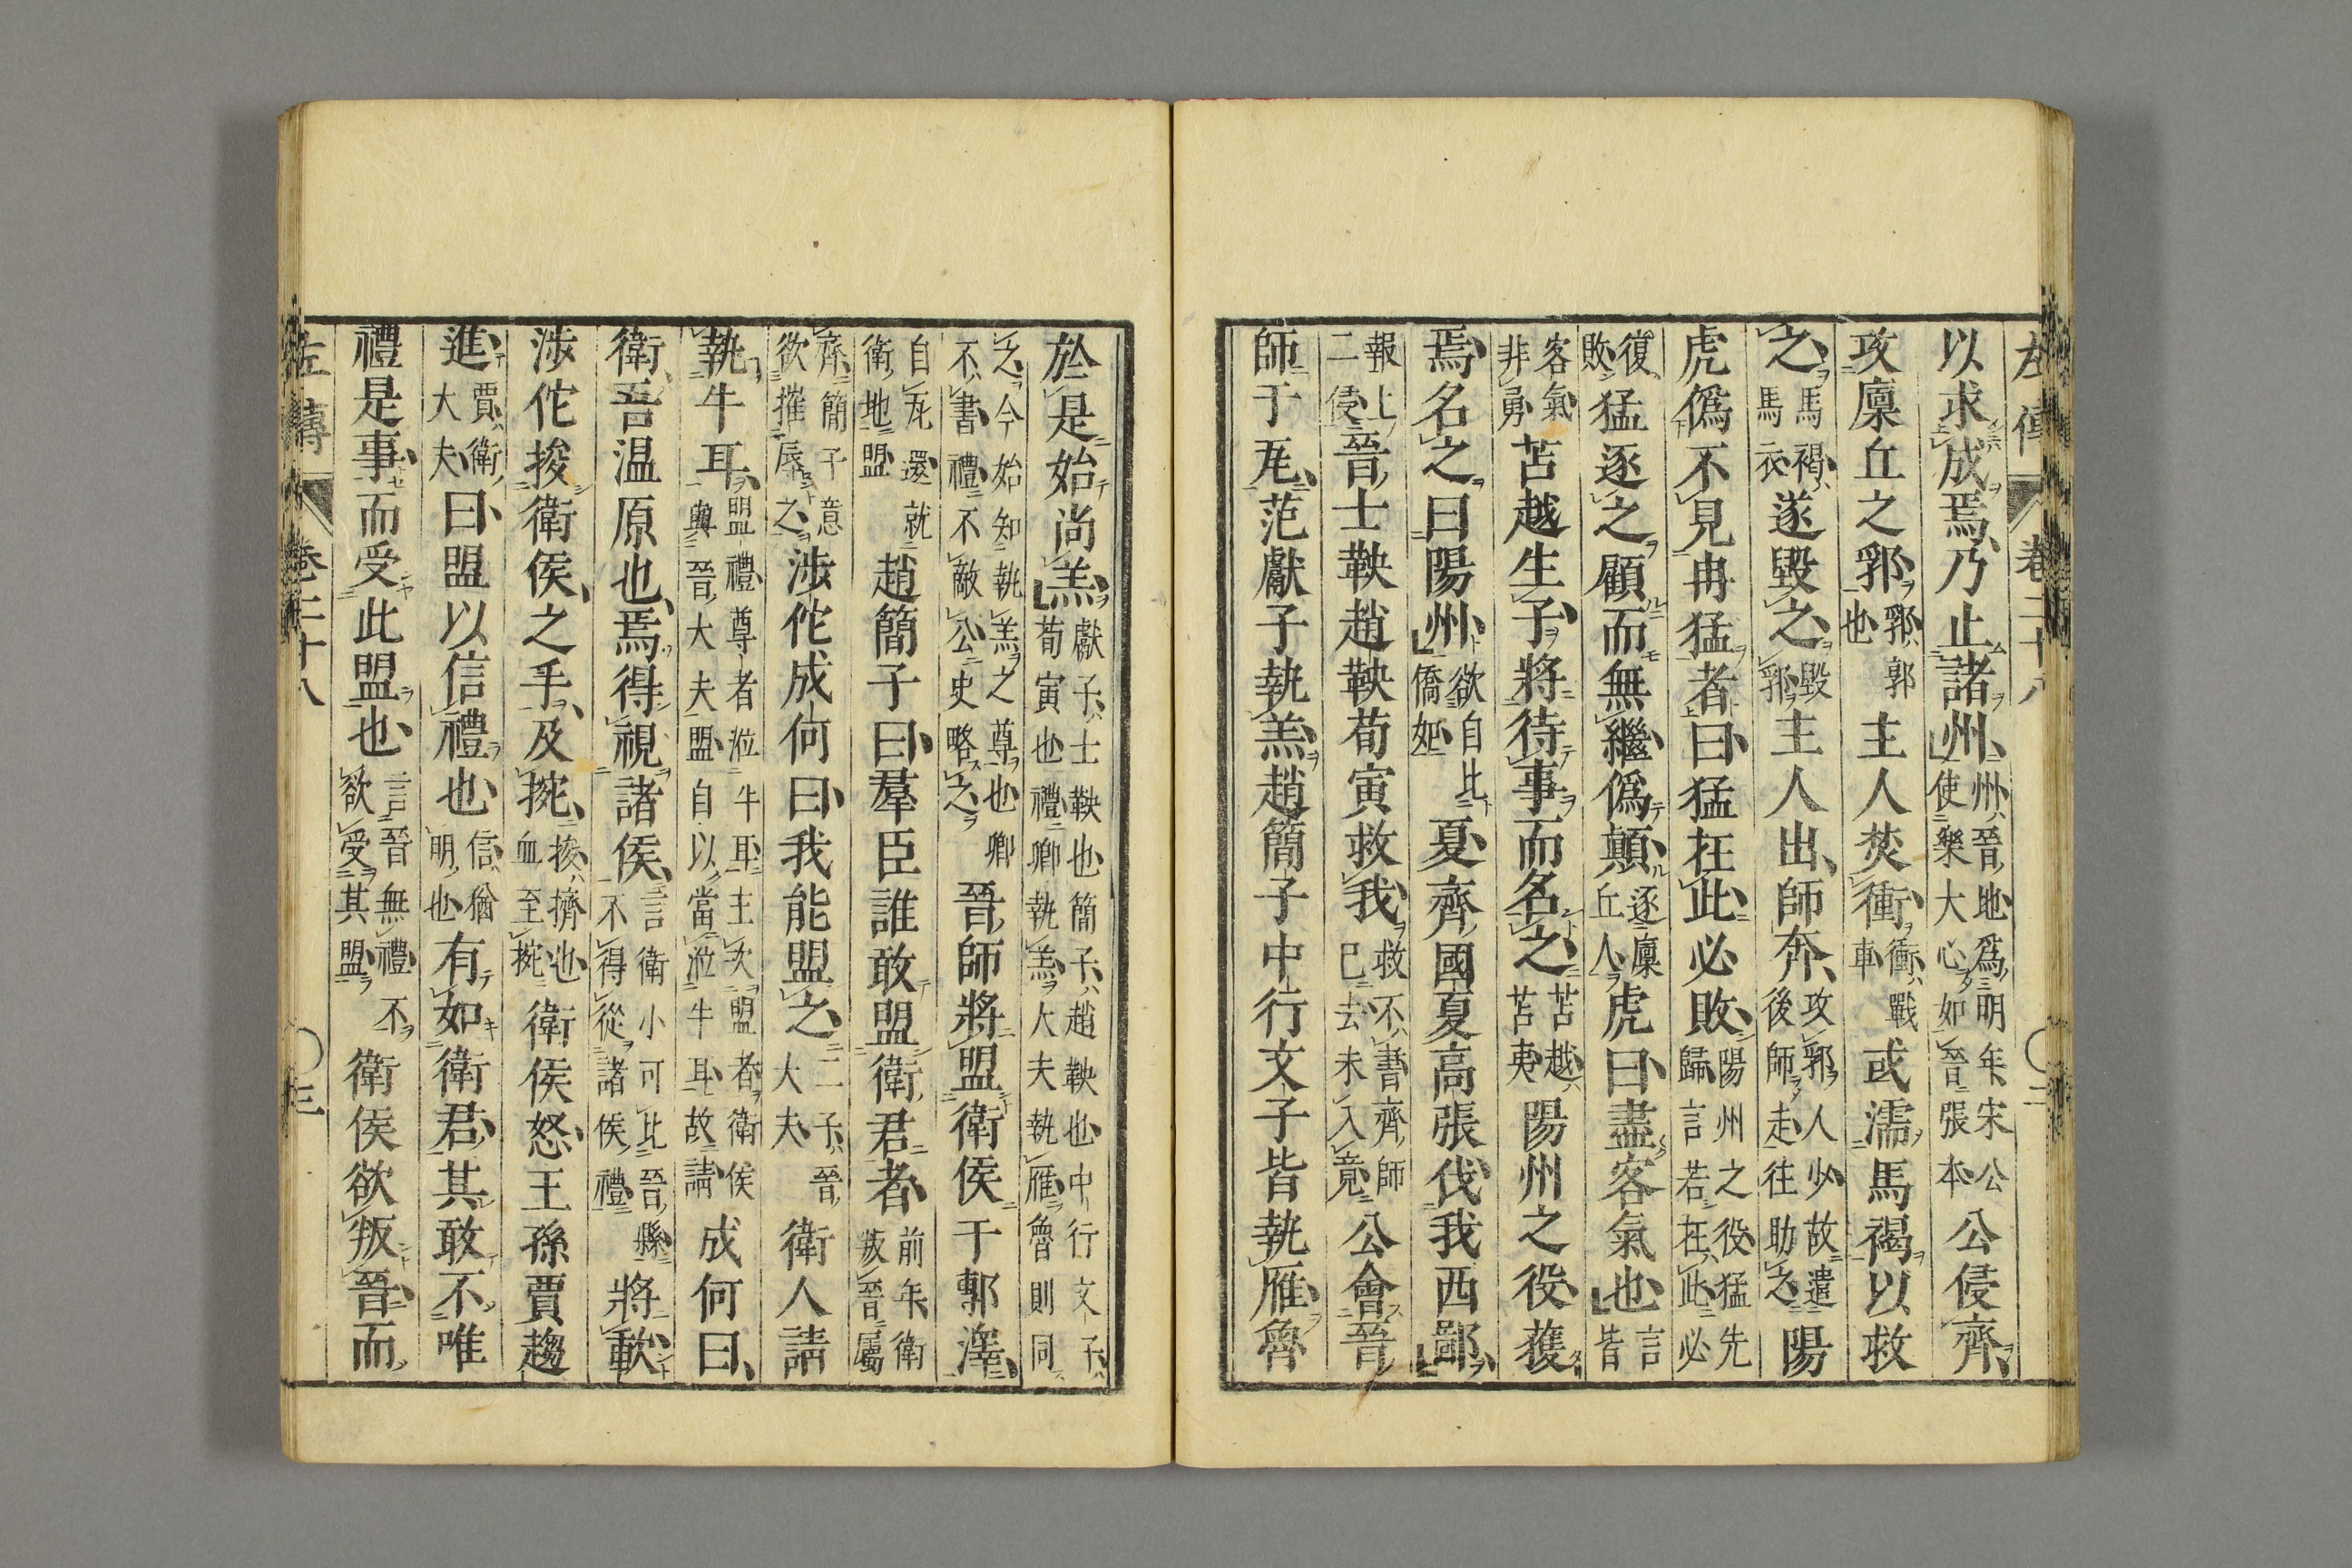 左傳 卷二十八 ○ 二
以求成焉乃止諸州州晉地爲明年宋公使樂大心如晉張本公侵齊
攻廩丘之郛郛郭也主人焚衝衝戰車或濡馬褐以救
之馬褐馬衣遂毀之毀郛主人出師奔攻郛人少故遣後師走往助之陽
虎僞不見冉猛者曰猛在此必敗陽州之役猛先歸言若在此必
復敗猛逐之顧而無繼僞顛逐廩丘人虎曰盡客氣也言皆
客氣非勇苫越生子將待事而名之苫越苫夷陽州之役獲
焉名之曰陽州欲自比僑如夏齊國夏高張伐我西鄙
報上二侵晉士鞅趙鞅荀寅救我救不書齊師已去未入竟公會晉
師于瓦范獻子執羔趙簡子中行文子皆執雁魯
於是始尚羔獻子士鞅也簡子趙鞅也中行文子荀寅也禮卿執羔大夫執雁魯則同
之今始知執羔之尊也卿不書禮不敵公史略之晉師將盟衛侯于鄟澤
自瓦還就衛地盟趙簡子曰羣臣誰敢盟衛君者前年衛叛晉屬
齊簡子意欲摧辱之涉佗成何曰我能盟之二子晉大夫衛人請
執牛耳盟禮尊者涖牛耳主次盟者衛侯與晉大夫盟自以當涖牛耳故請成何曰
衛吾温原也焉得視諸侯言衛小可比晉縣不得從諸侯禮將歃
涉佗捘衛侯之手及捥捘擠也血至捥衛侯怒王孫賈趨
進賈衛大夫曰盟以信禮也信猶明也有如衛君其敢不唯
禮是事而受此盟也言晉無禮不欲受其盟衛侯欲叛晉而
左傳 卷二十八 ○ 三